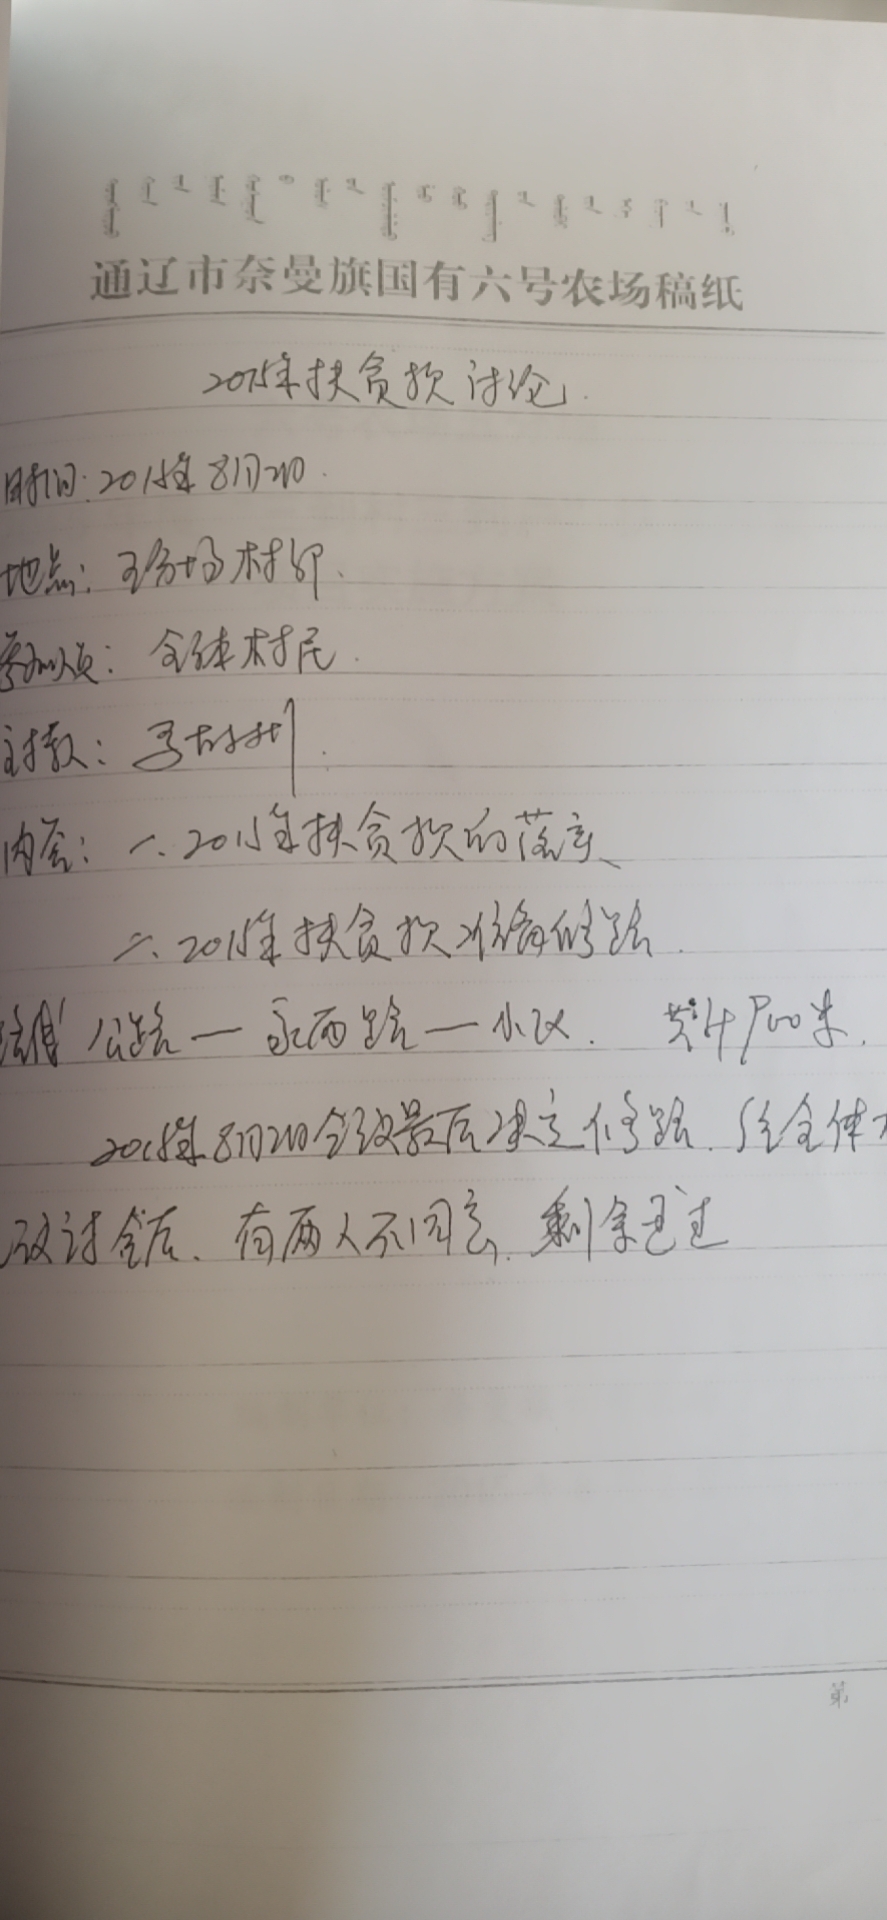 通辽市奈曼旗国有六号农场稿纸
2015年扶贫款讨论.
时间:2015年8月20.
地点:分场村部.
参加人员:全体村民.
主持人:
内容:一.2015年扶贫款的落实
二.2015年扶贫款准备修路.
公路—路—小汉. 共计700米.
2015年8月20会议最后决定修路.经全体
议讨论后、有两人不同意,剩余通过
第